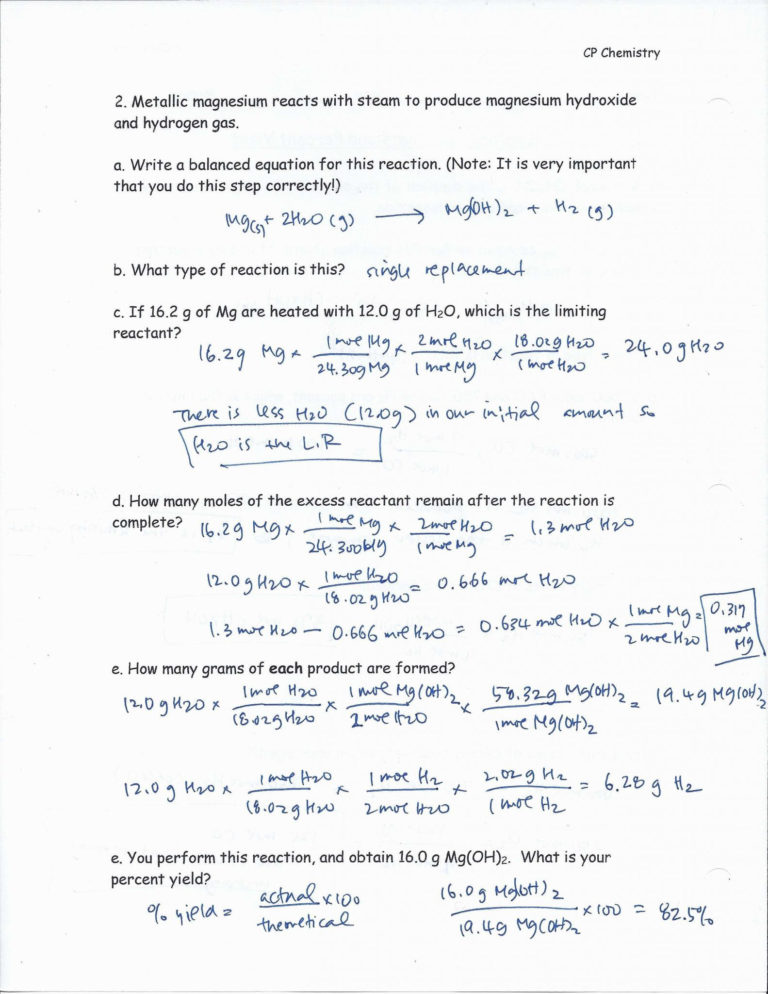 CP Chemistry
2. Metallic magnesium reacts with steam to produce magnesium hydroxide
and hydrogen gas.
a. Write a balanced equation for this reaction. (Note: It is very important
that you do this step correctly!)
Mg(s) + 2H2O (g) → Mg(OH)2 + H2 (g)
b. What type of reaction is this? single replacement
c. If 16.2 g of Mg are heated with 12.0 g of H2O, which is the limiting
reactant?
16.2g Mg × 1 mol Mg / 24.30g Mg × 2 mol H2O / 1 mol Mg × 18.02g H2O / 1 mol H2O = 24.0g H2O
There is less H2O (12.0g) in our initial amount so
H2O is the L.R
d. How many moles of the excess reactant remain after the reaction is
complete? 16.2g Mg × 1 mol Mg / 24.30g Mg × 2 mol H2O / 1 mol Mg = 1.3 mol H2O
12.0g H2O × 1 mol H2O / 18.02g H2O = 0.666 mol H2O
1.3 mol H2O – 0.666 mol H2O = 0.634 mol H2O × 1 mol Mg / 2 mol H2O = 0.317 mol Mg
e. How many grams of each product are formed?
12.0g H2O × 1 mol H2O / 18.02g H2O × 1 mol Mg(OH)2 / 2 mol H2O × 58.32g Mg(OH)2 / 1 mol Mg(OH)2 = 19.4g Mg(OH)2
12.0 g H2O × 1 mol H2O / 18.02g H2O × 1 mol H2 / 2 mol H2O × 2.02g H2 / 1 mol H2 = 6.28 g H2
e. You perform this reaction, and obtain 16.0 g Mg(OH)2. What is your
percent yield?
% yield = actual / theoretical ×100 16.0g Mg(OH)2 / 19.4g Mg(OH)2 ×100 = 82.5%